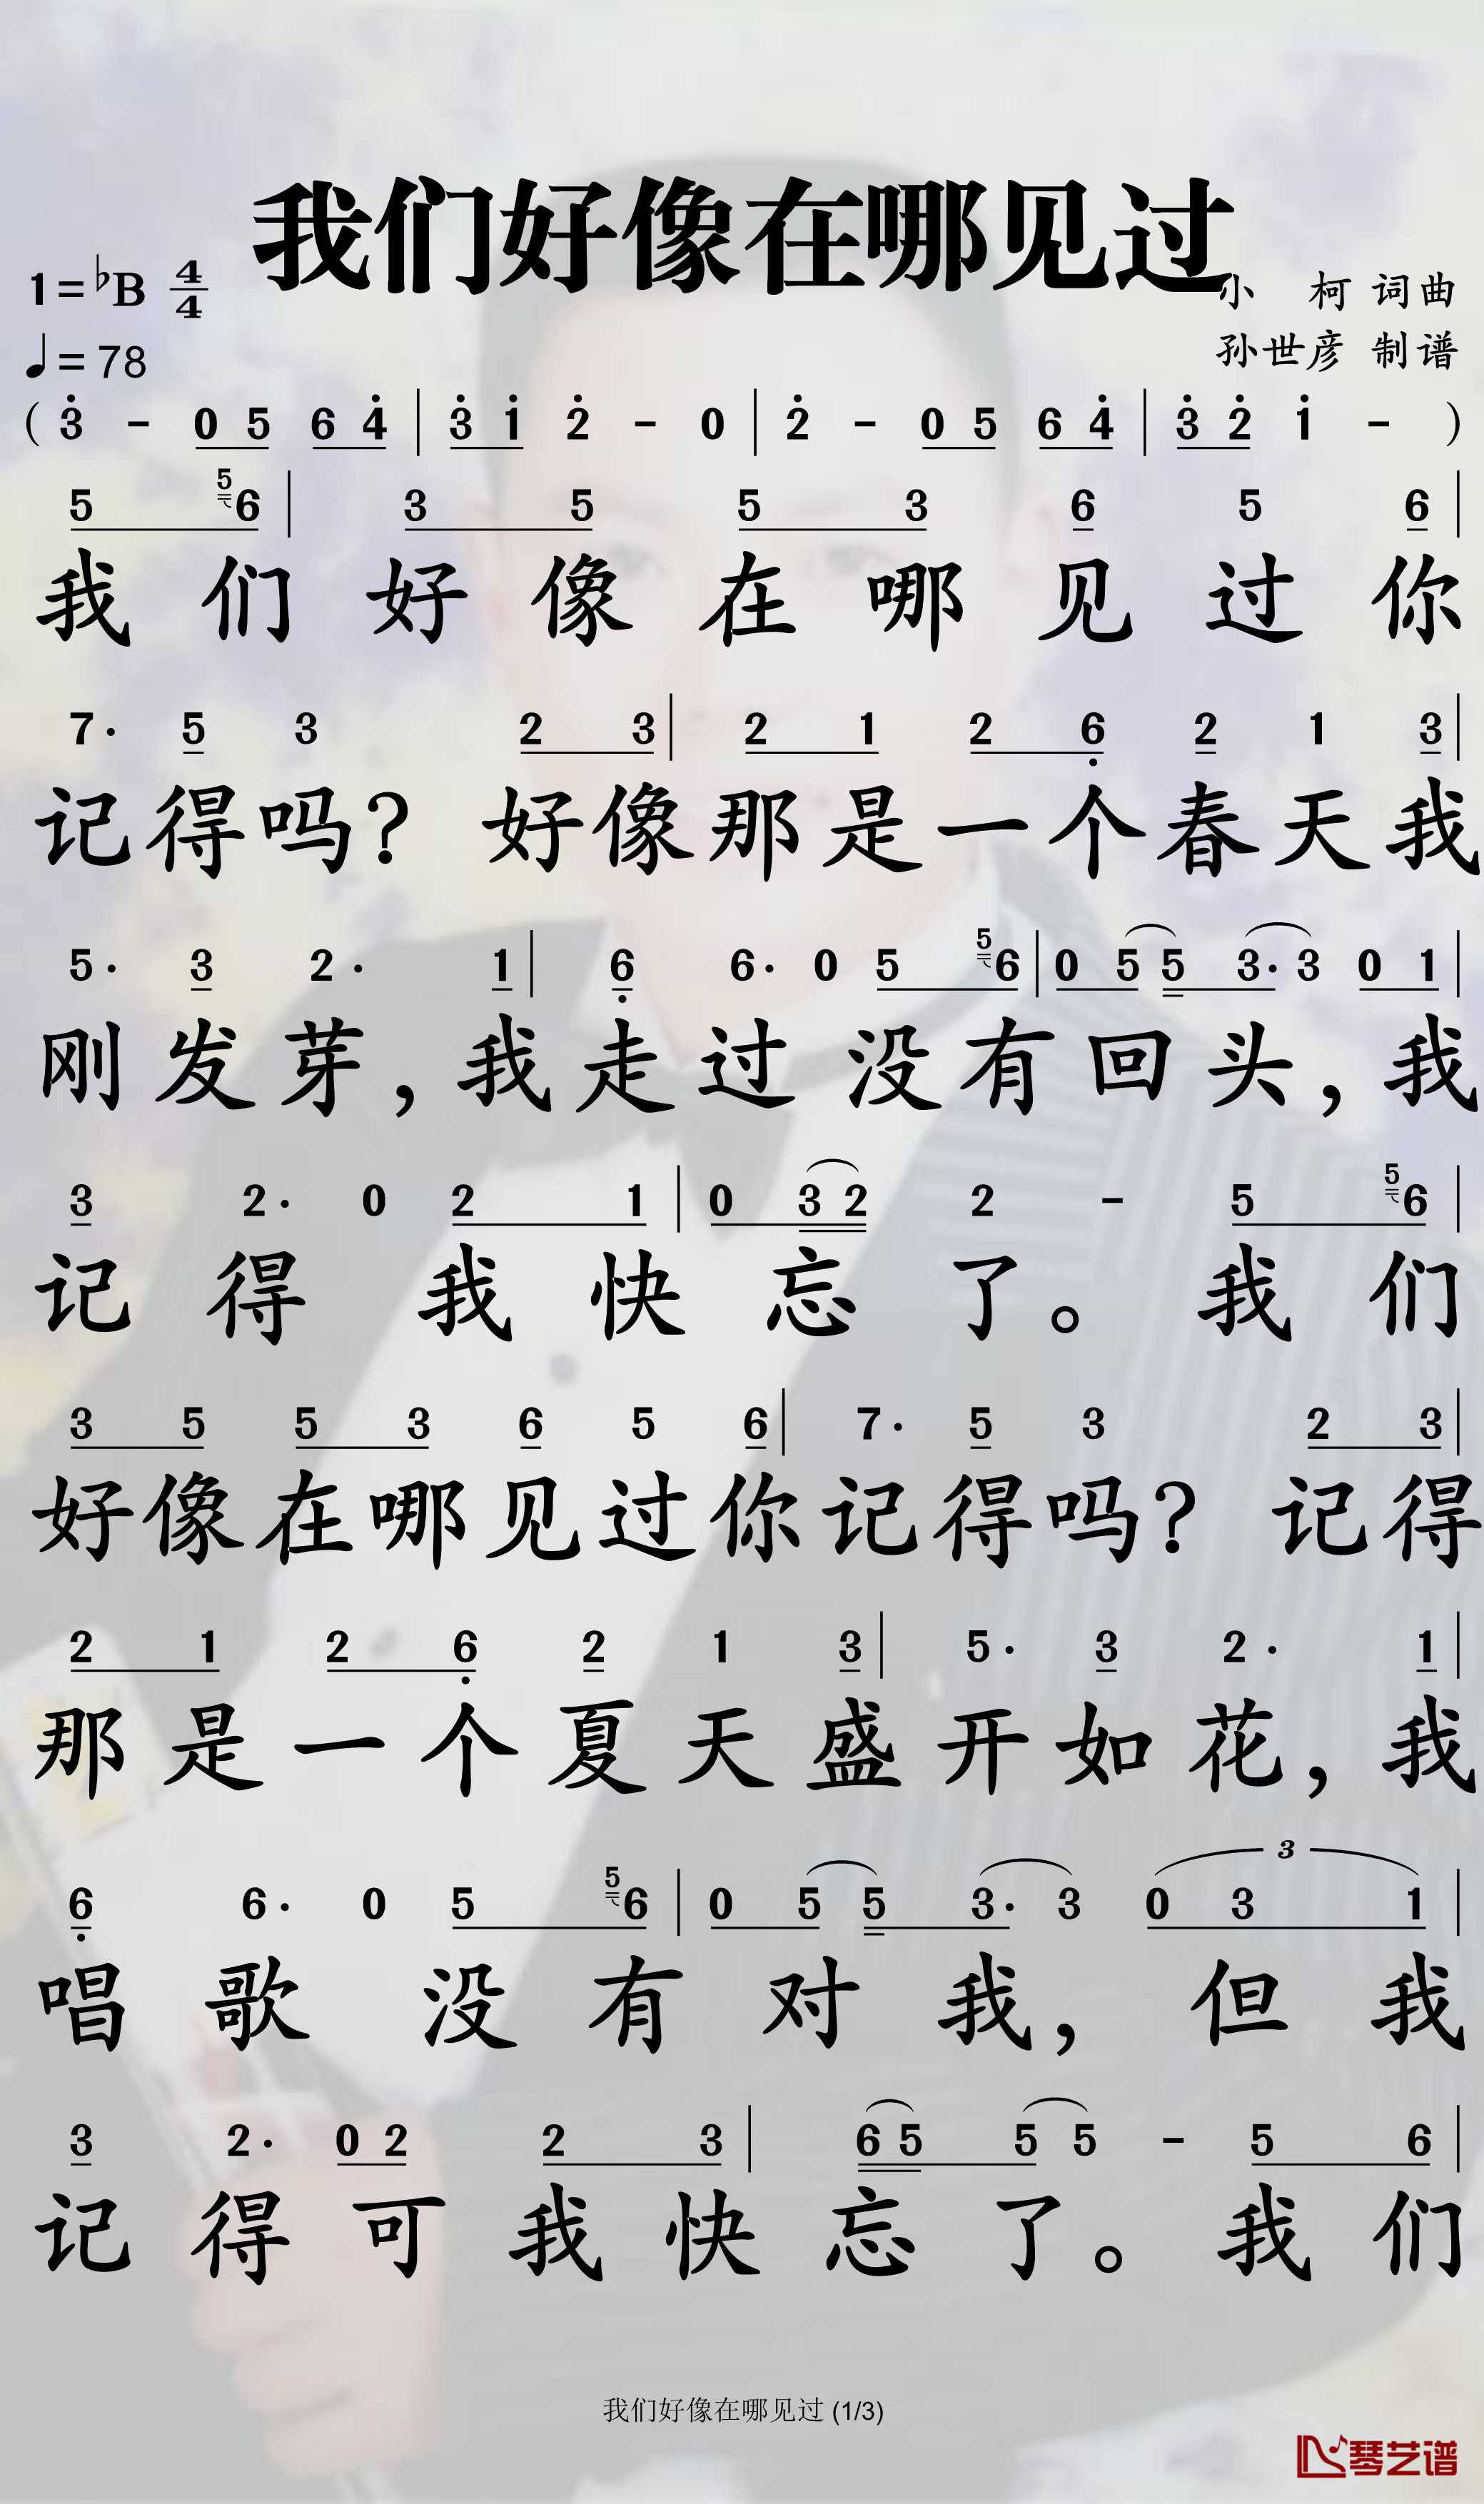 我们好像在哪见过
1=♭B 4/4
♩=78
小 柯 词曲
孙世彦 制谱
( 3̇ - 0 5 6 4̇ | 3̇ 1̇ 2̇ - 0 | 2̇ - 0 5 6 4̇ | 3̇ 2̇ 1̇ - )
5 5 6 | 3 5 5 3 6 5 6 |
我们好像在哪见过你
7· 5 3 2 3 | 2 1 2 6̣ 2 1 3 |
记得吗? 好像那是一个春天我
5· 3 2· 1 | 6̣ 6· 0 5 5 6 | 0 5 5 3· 3 0 1 |
刚发芽,我走过没有回头,我
3 2· 0 2 1 | 0 3 2 2 - 5 5 6 |
记得我快忘了。我们
3 5 5 3 6 5 6 | 7· 5 3 2 3 |
好像在哪见过你记得吗? 记得
2 1 2 6̣ 2 1 3 | 5· 3 2· 1 |
那是一个夏天盛开如花,我
6̣ 6· 0 5 5 6 | 0 5 5 3· 3 3 0 3 1 |
唱歌没有对我,但我
3 2· 0 2 2 3 | 6 5 5 5 - 5 6 |
记得可我快忘了。我们
我们好像在哪见过 (1/3)
琴艺谱